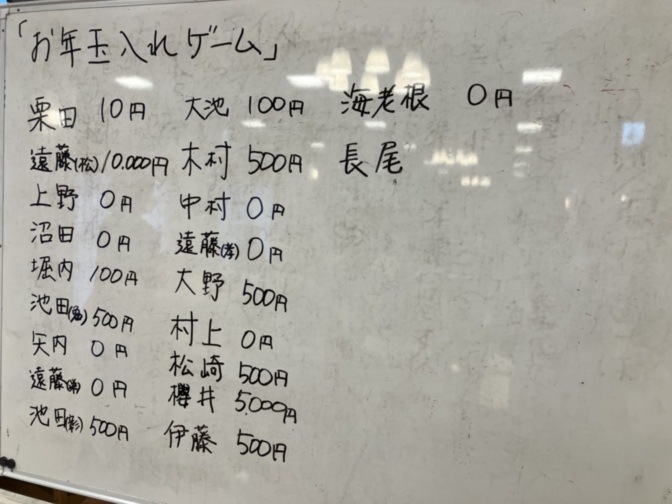 「お年玉入れゲーム」
栗田 10円
遠藤(松) 10.000円
上野 0円
沼田 0円
堀内 100円
池田 500円
矢内 0円
遠藤 0円
池田(彰) 500円
大池 100円
木村 500円
中村 0円
遠藤(孝) 0円
大野 500円
村上 0円
松崎 500円
櫻井 5.000円
伊藤 500円
海老根 0円
長尾